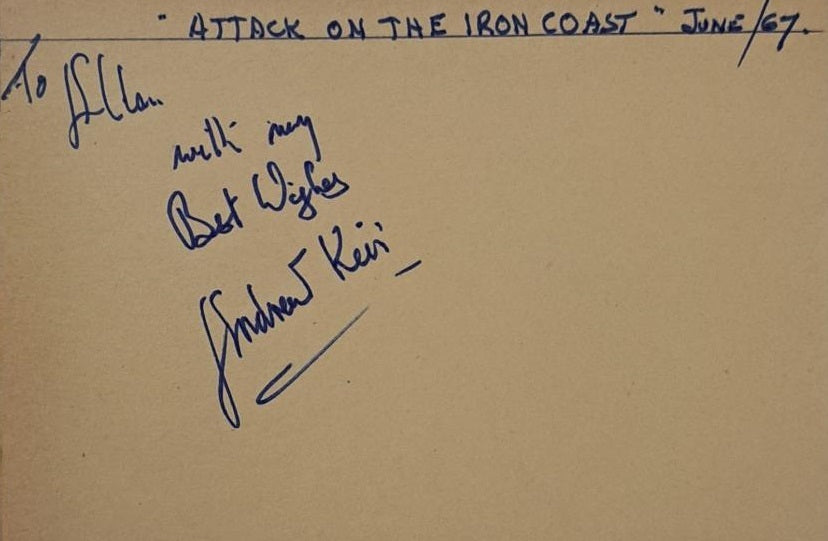 " ATTACK ON THE IRON COAST " JUNE/67.
To Allan
with my
Best Wishes
Andrew Keir